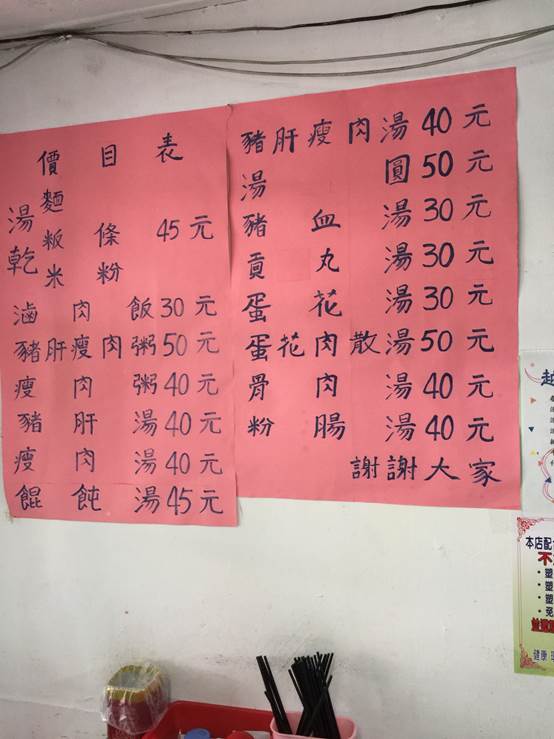 價目表
湯 麵
乾 粄條 45元
米粉
滷肉飯30元
豬肝瘦肉粥50元
瘦肉粥40元
豬肝湯40元
瘦肉湯40元
餛飩湯45元
豬肝瘦肉湯40元
湯圓50元
豬血湯30元
貢丸湯30元
蛋花湯30元
蛋花肉散湯50元
骨肉湯40元
粉腸湯40元
謝謝大家
越
本店配
不
健康